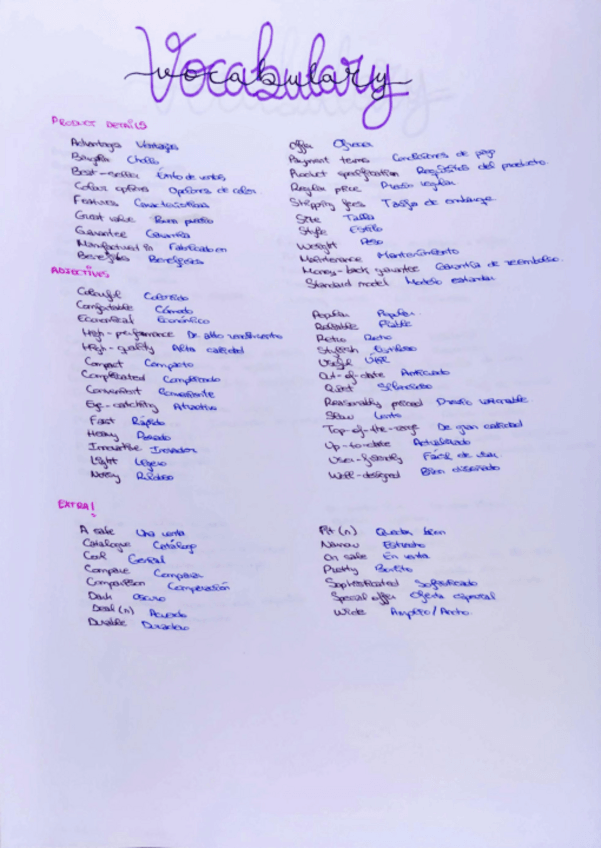 Vocabulary
vocabulary
PRODUCT DETAILS
Advantages Ventajas
Bargain Chollo
Best-seller Éxito de ventas
Colour options Opciones de color
Features Características
Great value Buen precio
Guarantee Garantía
Manufactured in Fabricado en
Benefits Beneficios
Offer Ofrecer
Payment terms Condiciones de pago
Product specification Requisitos del producto
Regular price Precio regular
Shipping fees
Size Talla
Style Estilo
Weight Peso
Maintenance Mantenimiento
Money-back guarantee Garantía de reembolso
Standard model Modelo estándar
ADJECTIVES
Colourful Colorido
Comfortable Cómodo
Economical Económico
High-performance De alto rendimiento
High-quality Alta calidad
Compact Compacto
Complicated Complicado
Convenient Conveniente
Eye-catching Atractivo
Fast Rápido
Heavy Pesado
Innovative Inovador
Light Ligero
Noisy Ruidoso
Popular Popular
Reliable Fiable
Retro Retro
Stylish
Useful Útil
Out-of-date Anticuado
Quiet Silencioso
Reasonably priced Precio razonable
Slow Lento
Top-of-the-range De gran calidad
Up-to-date Actualizado
User-friendly Fácil de usar
Well-designed Bien diseñado
EXTRA!
A sale Una venta
Catalogue Catálogo
Cool Genial
Compare Comparar
Comparison Comparación
Dark Oscuro
Deal (n) Acuerdo
Durable Duradero
Fit (n) Quedar bien
Narrow Estrecho
On sale En venta
Pretty Bonito
Sophisticated Sofisticado
Special offer Oferta especial
Wide Amplio/Ancho